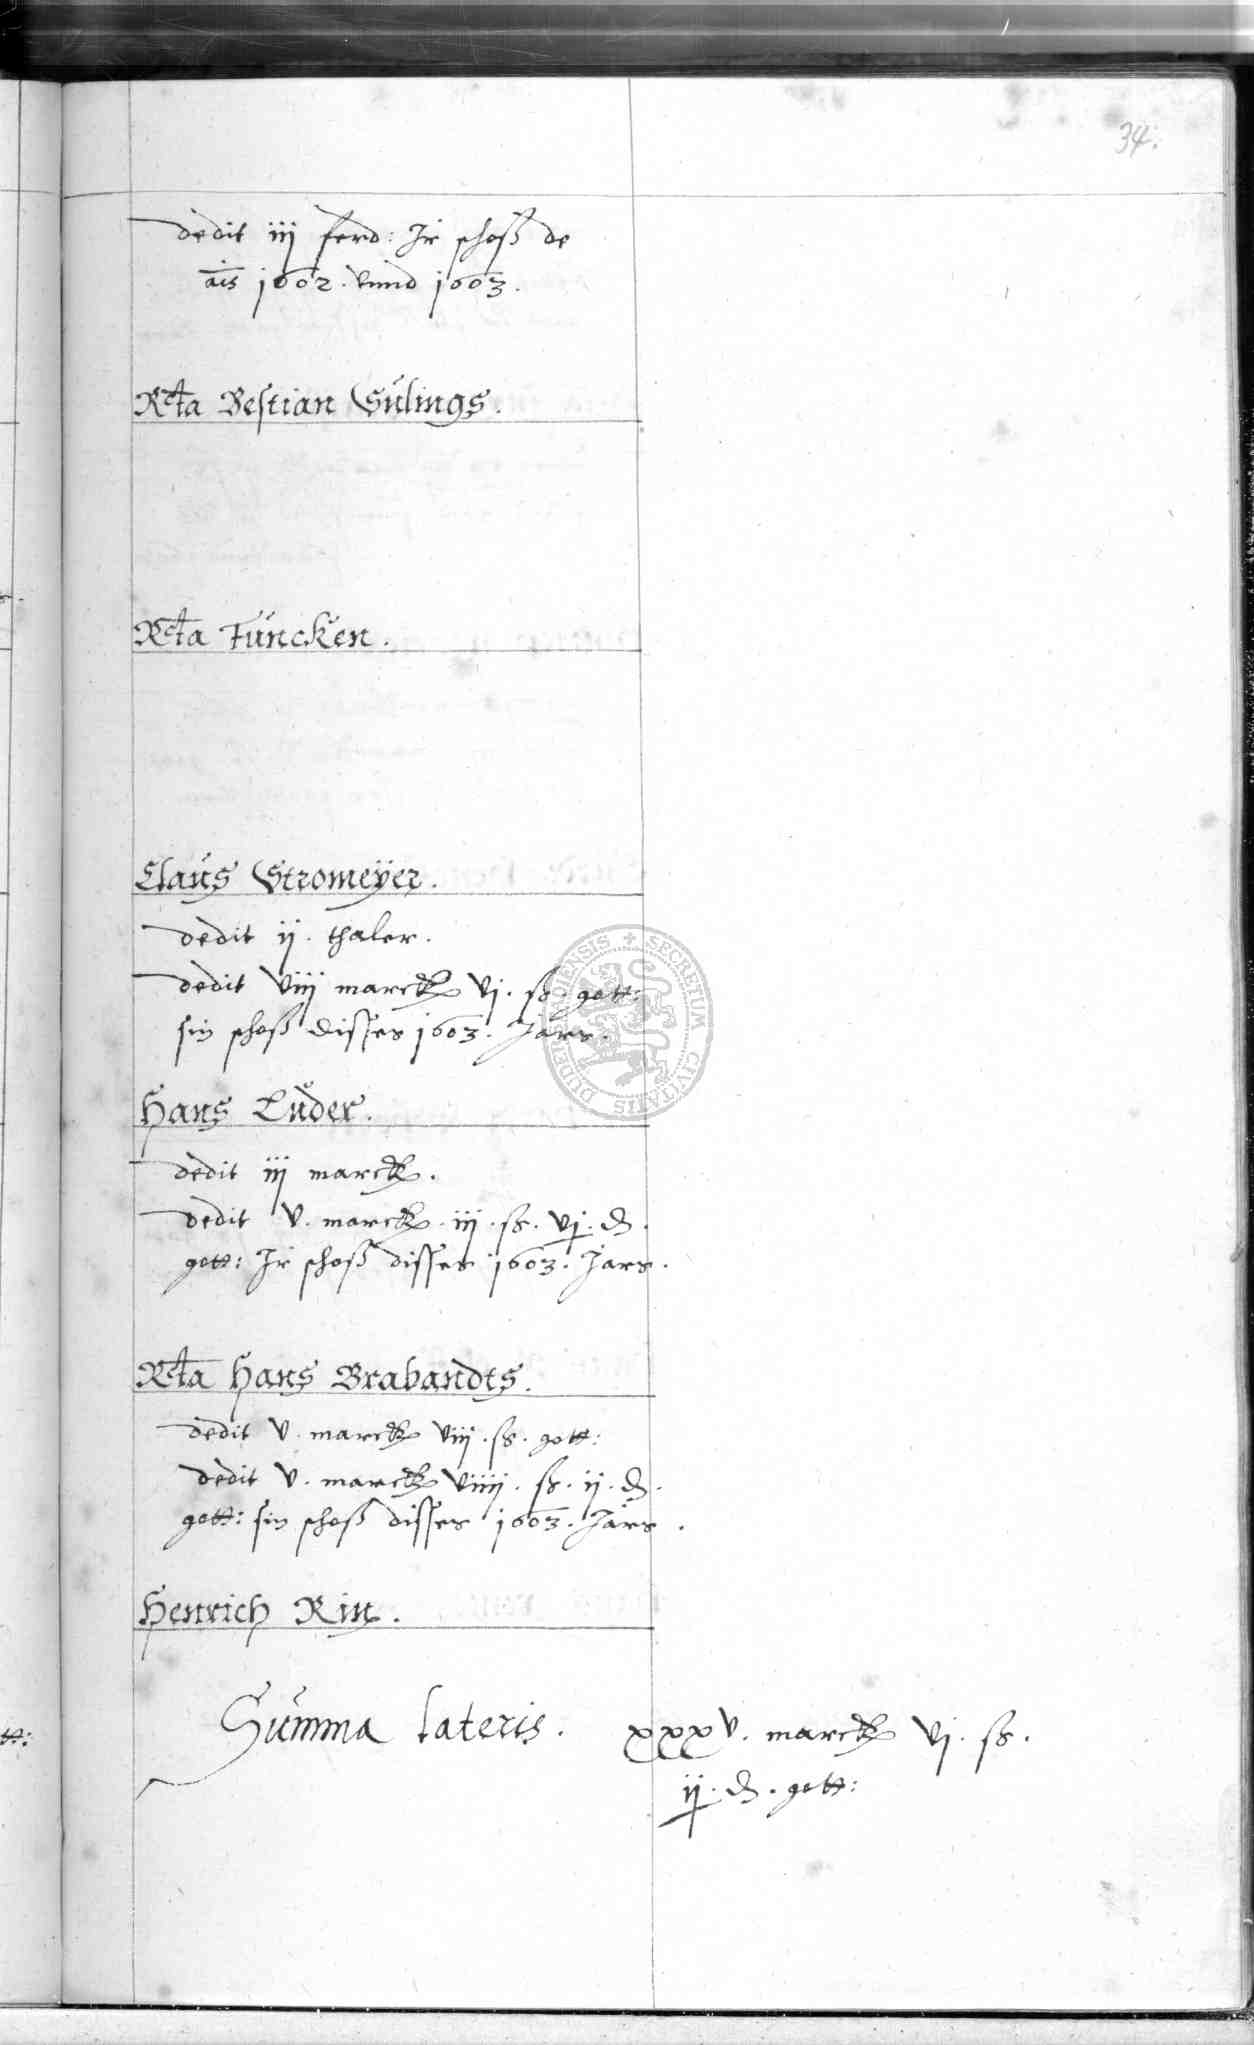 34.
dedit iij ferd: Ir schoß de
ais 1602. vnnd 1603.
Rcta Bestian Sülings.
Rcta Füncken.
Claus Stromeÿer.
dedit ij. thaler.
dedit viij marck vj. ß. gott:
sin schoß disses 1603. Jars.
Hans Lüder.
dedit iij marck.
dedit v. marck. iij. ß. vj. d.
gott: Ir schoß disses 1603. Jars.
Rcta Hans Brabandts.
dedit v. marck viij. ß. gott:
dedit v. marck viiij. ß. ij. d.
gott: sin schoß disses 1603. Jars.
Henrich Rin.
Summa lateris. xxxv. marck vj. ß.
ij. d. gott:
tt:
SECRETUM CIVITATIS DUDERSTADIENSIS